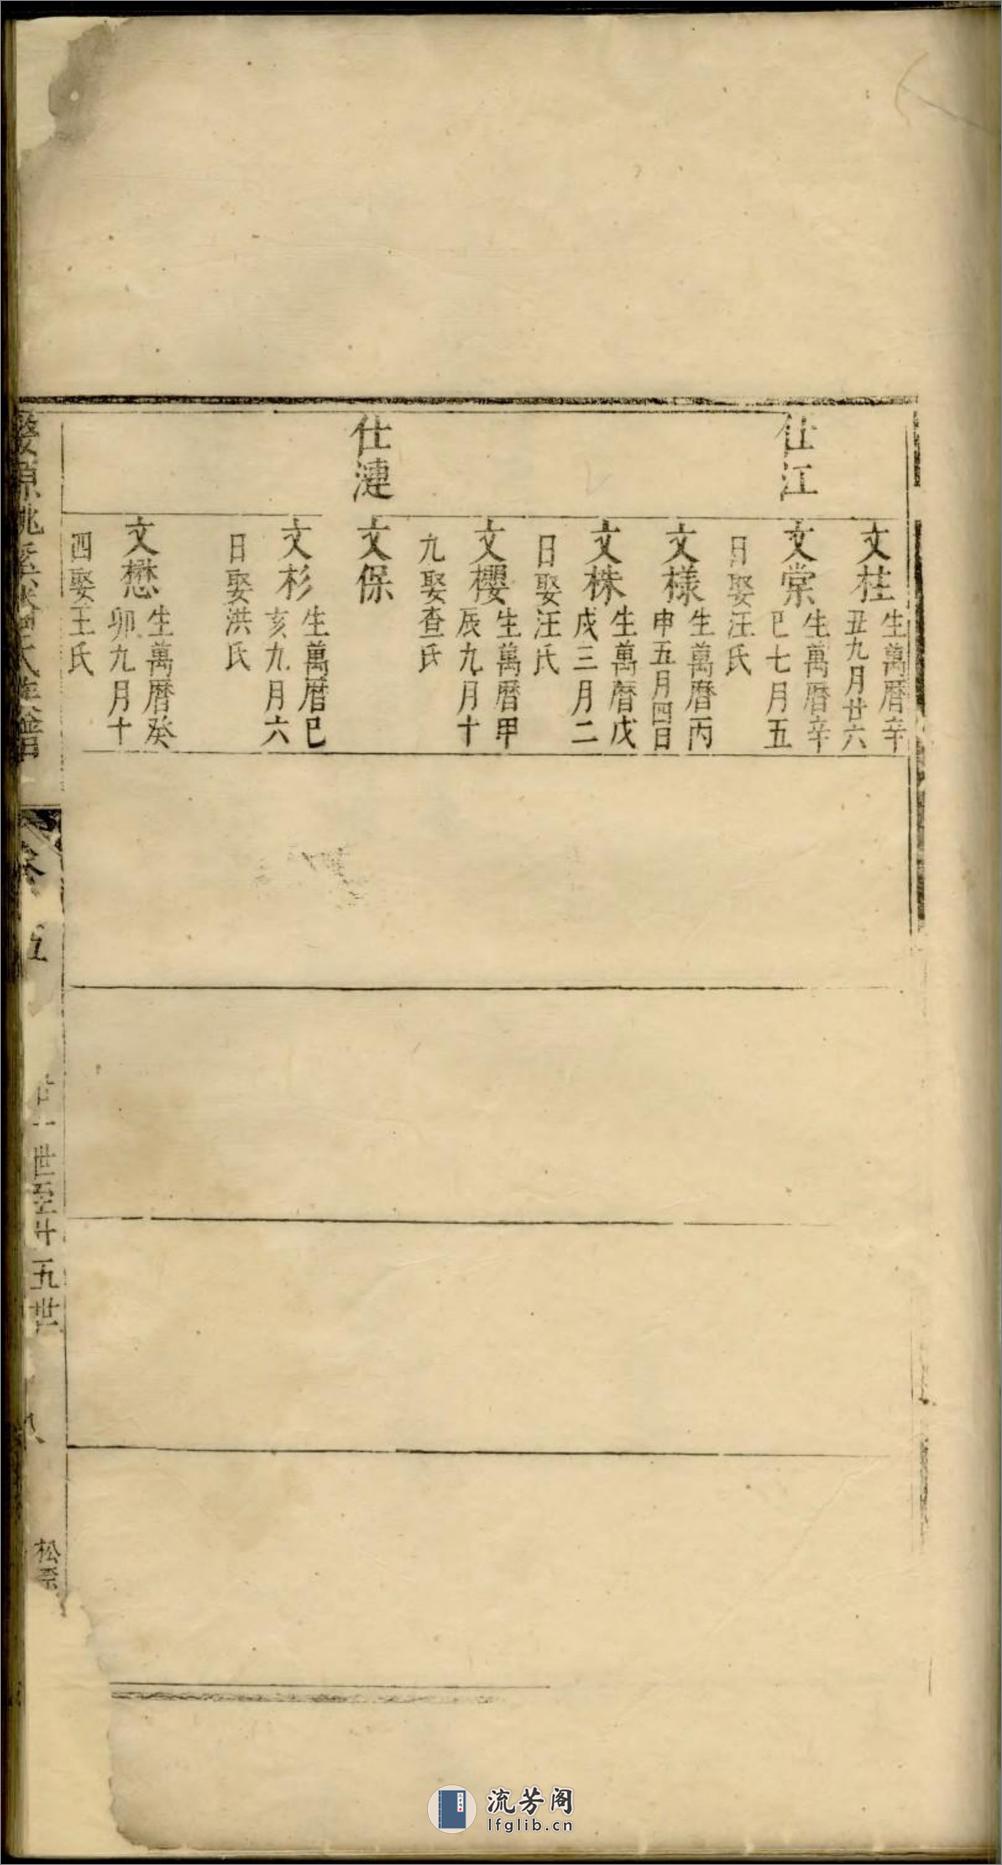 仕江
文桂
生萬曆辛
丑九月廿六
文棠
生萬曆辛
巳七月五
日娶汪氏
文樣
生萬曆丙
申五月四日
文株
生萬曆戊
戌三月二
日娶汪氏
文櫻
生萬曆甲
辰九月十
九娶查氏
仕漣
文保
文杉
生萬曆己
亥九月六
日娶洪氏
文懋
生萬曆癸
卯九月十
四娶王氏
卷五
廿一世至廿五世
松
流芳阁
lfglib.cn